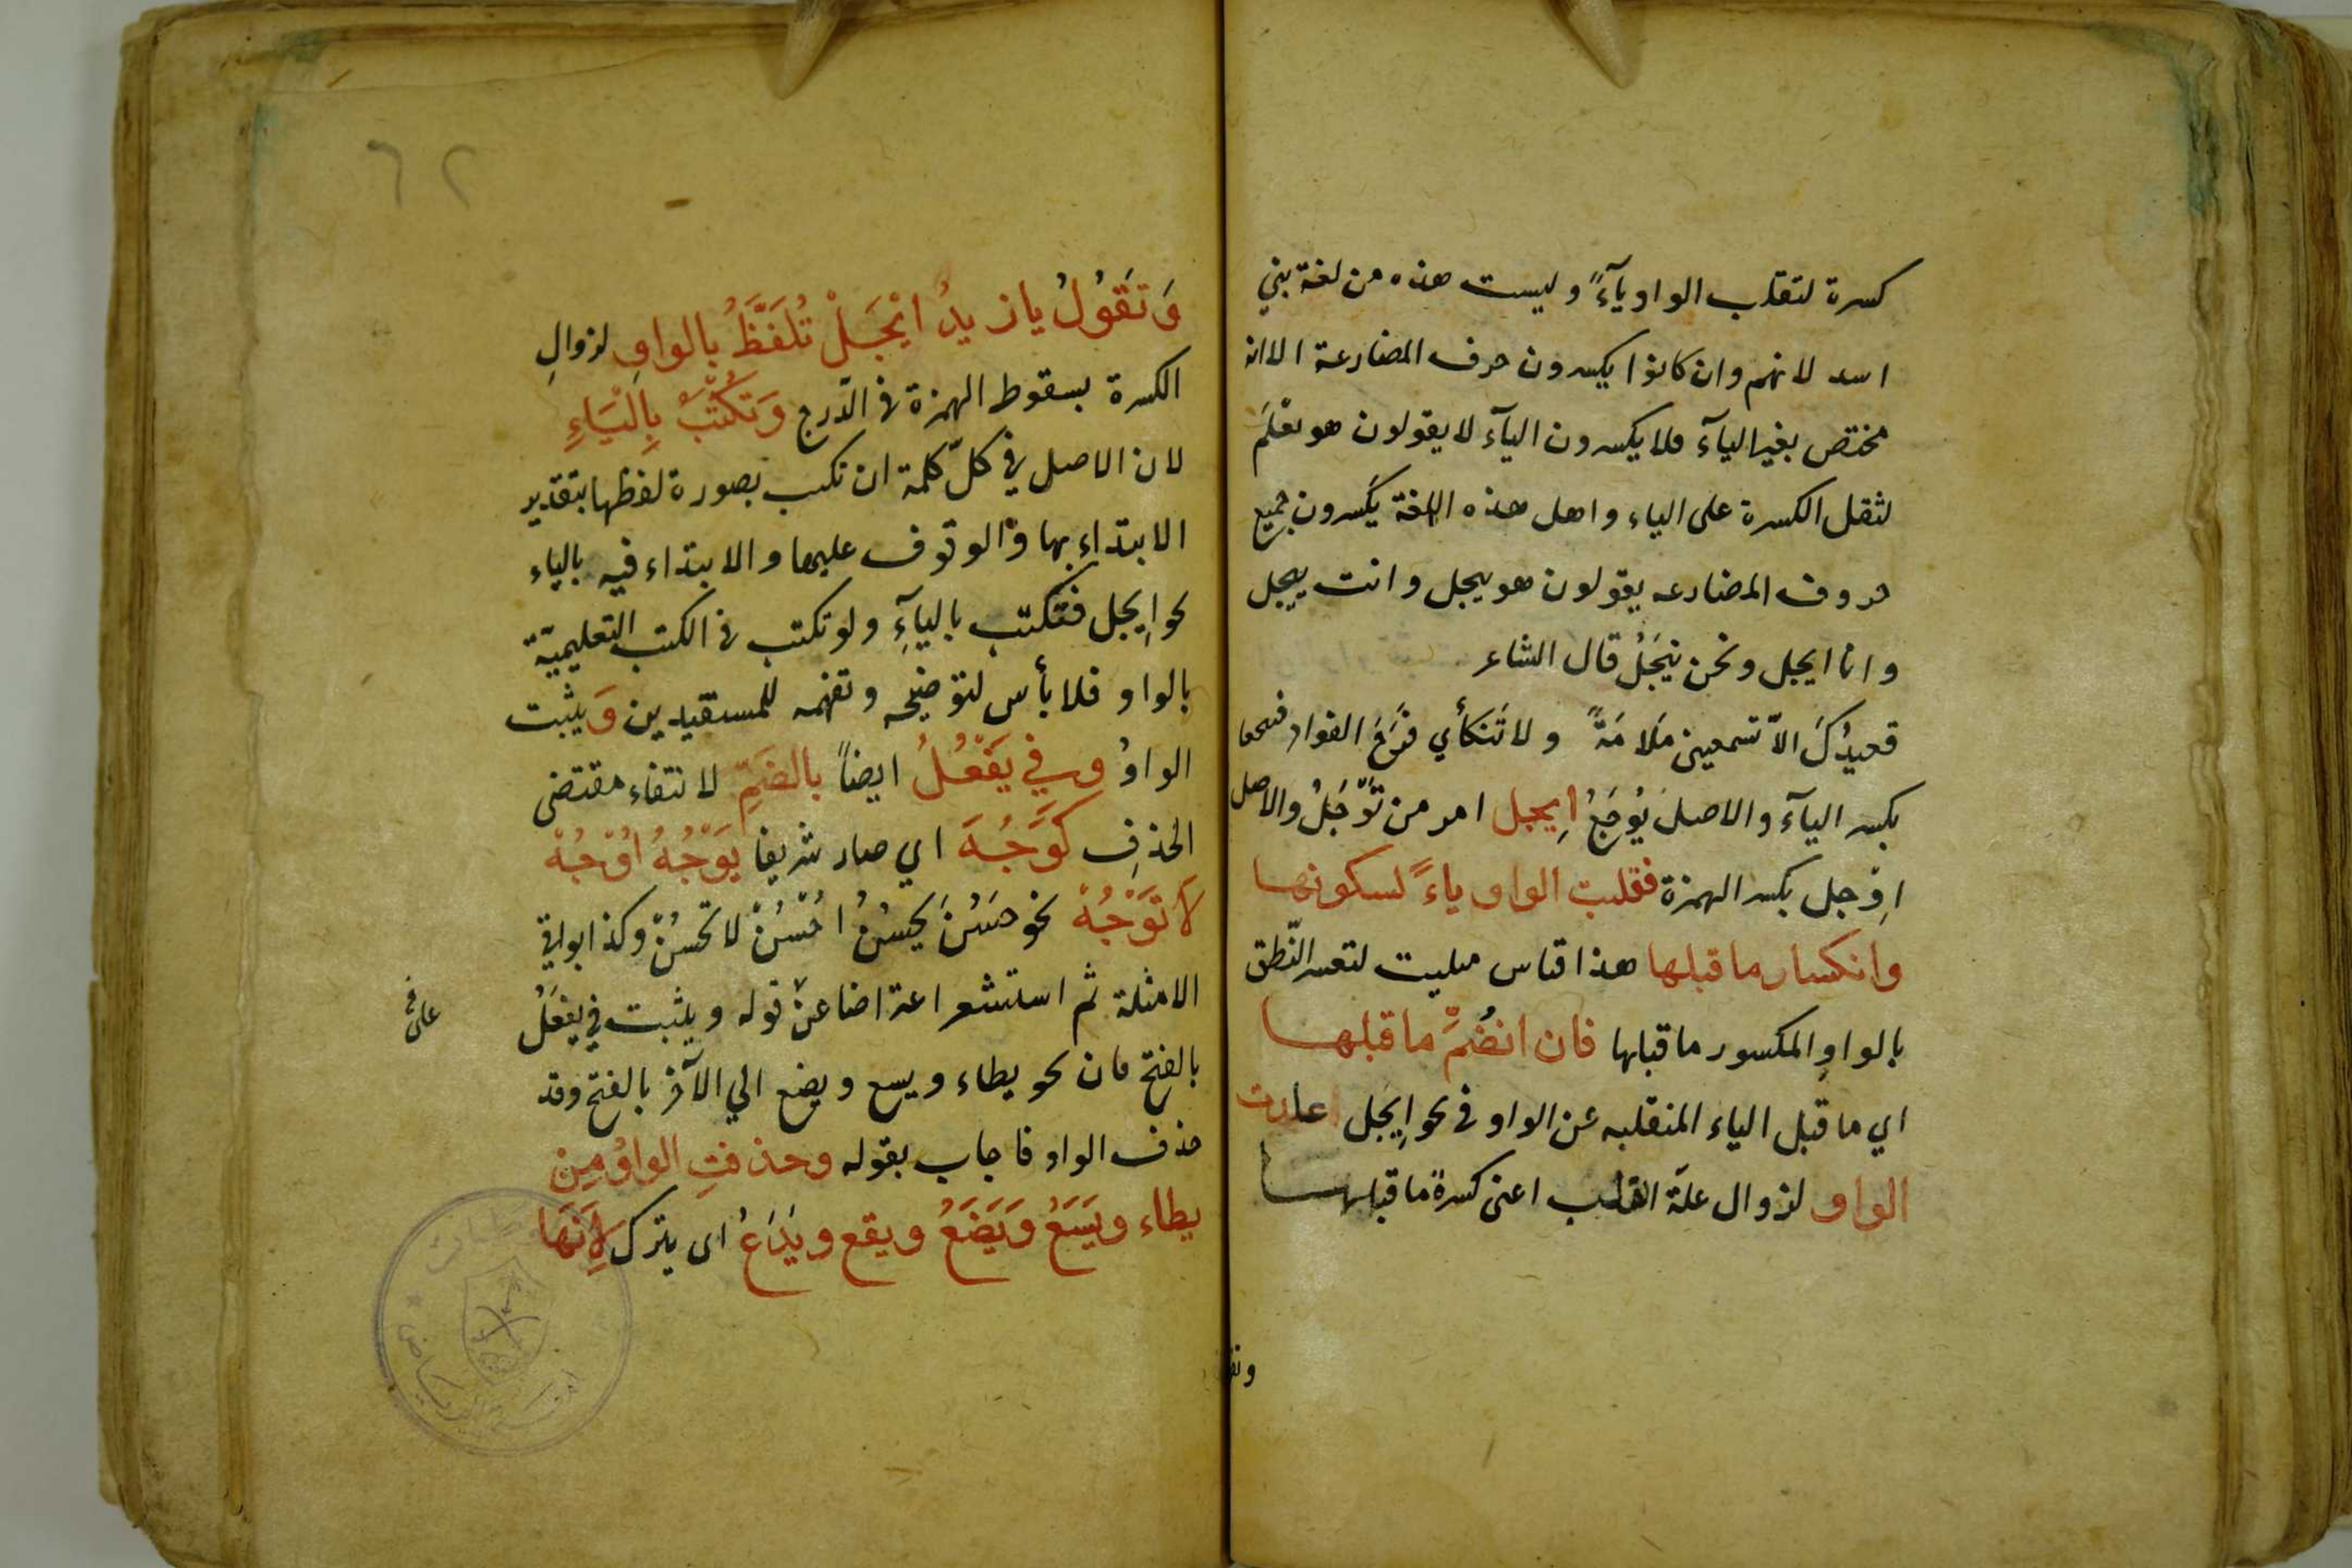 كسرة لتقلب الواو يآءً وليست هذه من لغة بني
اسد لانهم وان كانوا يكسرون حرف المضارعة الا انه
مختص بغير اليآء فلا يكسرون اليآء لا يقولون هو يعْلَم
لثقل الكسرة على الياء واهل هذه اللغة يكسرون جميع
حروف المضارعه يقولون هو ييجل وانت تيجل
وانا ايجل ونحن نيجَلُ قال الشاعر
قعيدُكَ الاّ تسمعين مَلَامَةً ولا تَنكأي قَرَحَ الفواد فييجعا
بكسر اليآء والاصل يُوجَعُ اِيجل امر من تَوْجَلُ والاصل
اِوْجل بكسر الهمزة فقلبت الواو ياءً لسكونها
وانكسار ما قبلها هذا قياس لتعسر النّطق
بالواوِ المكسور ما قبلها فان انضُمَّ ما قبلها
اي ما قبل الياء المنقلبه عن الواو في نحو اِيجَل عادت
الواو لزوال علّة القلب اعني كسرة ما قبلها
وتقو
٦٢
وَتَقُولُ يا زيدُ ايْجَلْ تُلَفَّظُ بالواوِ لزوالِ
الكسرة بسقوط الهمزة في الدّرج وَتكْتَبُ بِالْيَاءِ
لان الاصل في كلّ كلمة ان تكتب بصورة لفظها بتقدير
الابتداءِ بها والوقوف عليها والابتداء فيه بالياء
نحو اِيجل فتكتب باليآءِ ولو تكتب في الكتب التعليميّة
بالواو فلا بأس لتوضيحه وتفهمه للمستفيدين وَيثبت
الواوُ وفي يَفْعُلُ ايضاً بالضَمِّ لانتفاء مقتضى
الحذفِ كَوَجُهَ اي صار شريفا يَوْجُهُ اُوْجُهْ
لَا تَوْجُهْ نحو حَسُنَ يَحْسُنُ اُحْسُنْ لا تَحْسُنْ وكذا بواقي
الامثلة ثم استشعر اعتراضا عن قوله ويثبت في يفعَلُ
على
بالفتح فان نحو يطاء ويسع ويضع الي الآخر بالفتح وقد
حذف الواو فاجاب بقوله وحذفتِ الواوُ مِن
يطاء ويَسَعُ وَيَضَعُ ويقع ويَدَعُ اى يترك لِاَنَّهَا